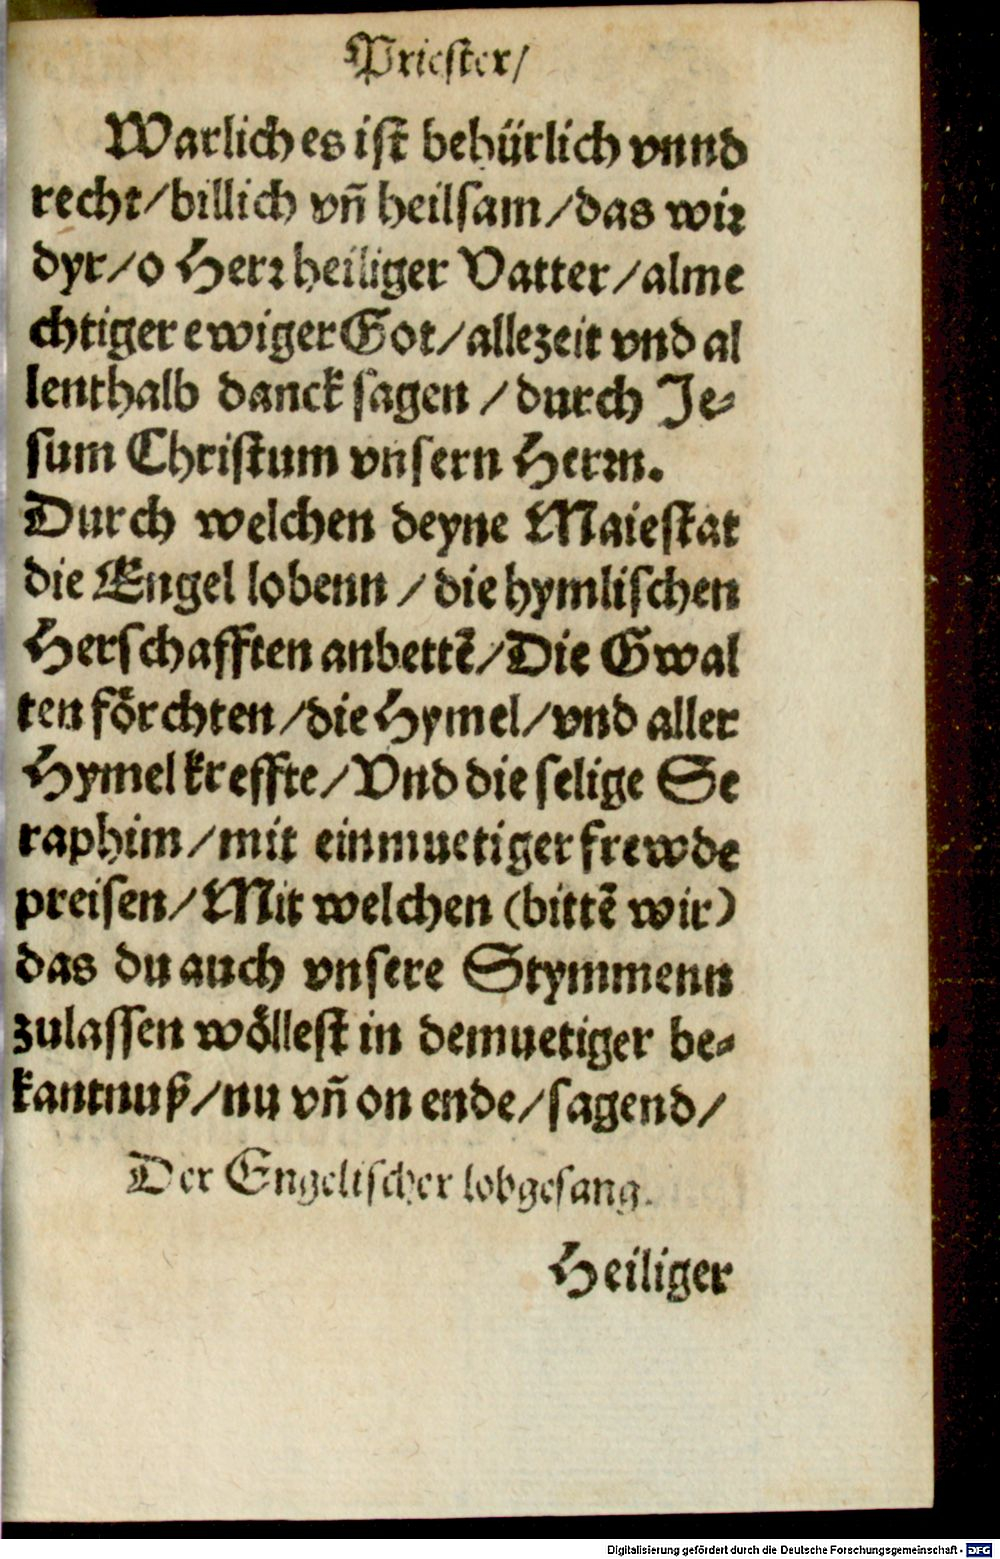 Priester/
Warlich es ist behürlich vnnd
recht/billich vñ heilsam/das wir
dyr/o Herr heiliger Vatter/alme
chtiger ewiger Got/allezeit vnd al
lenthalb danck sagen/durch Je-
sum Christum vnsern Herrn.
Durch welchen deyne Maiestat
die Engel lobenn/die hymlischen
Herschafften anbettẽ/Die Gwal
ten förchten/die Hymel/vnd aller
Hymel kreffte/Vnd die selige Se
raphim/mit einmuetiger frewde
preisen/Mit welchen (bittẽ wir)
das du auch vnsere Stymmenn
zulassen wöllest in demuetiger be-
kantnuß/nu vñ on ende/sagend/
Der Engelischer lobgesang.
Heiliger
Digitalisierung gefördert durch die Deutsche Forschungsgemeinschaft - DFG